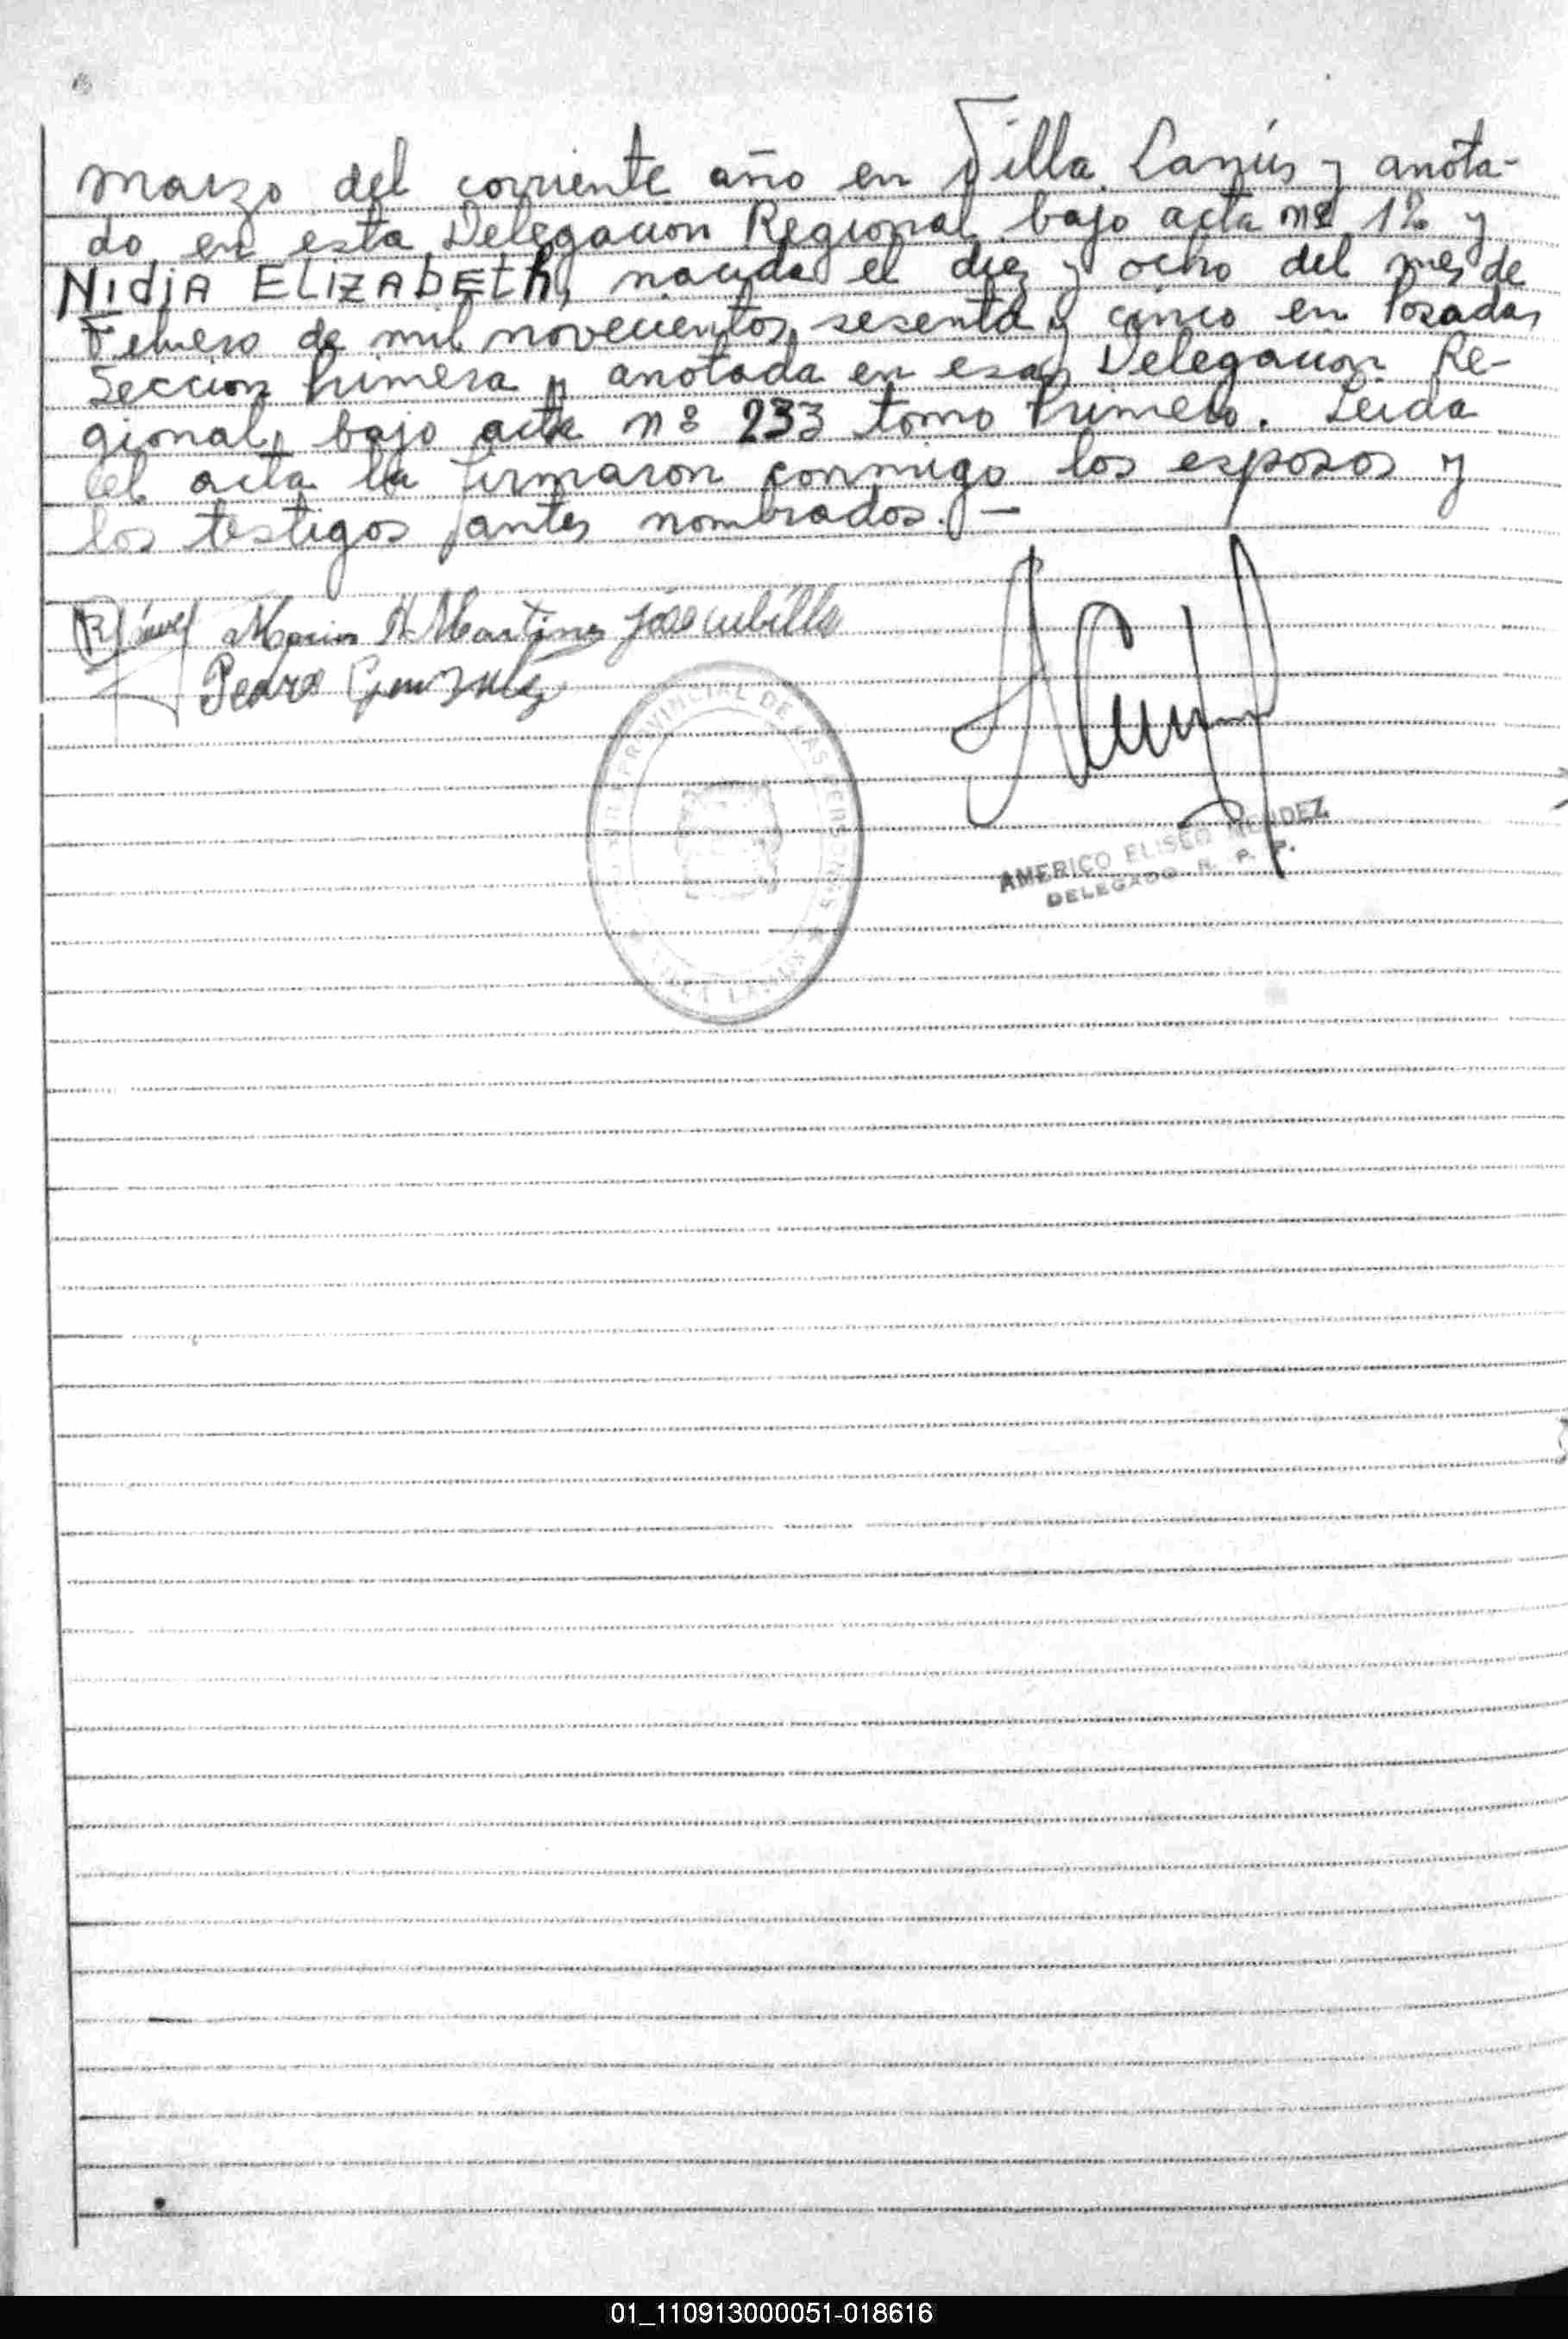 marzo del corriente año en Villa Lanús y anota-
do en esta Delegacion Regional bajo acta nº 12 y
NidiA ELIZAbETh, nacida el diez y ocho del mes de
Febrero de mil novecientos sesenta y cinco en Posadas
Seccion Primera y anotada en esa Delegacion Re-
gional, bajo acta nº 233 tomo Primero. Leida
el acta la firmaron conmigo los esposos y
los testigos antes nombrados. —
A Martinez José cubilla
Pedro Gonzalez
PROVINCIAL DE LAS PERSONAS
VILLA LANUS
AMERICO ELISEO MENDEZ
DELEGADO R. P. P.
01_110913000051-018616